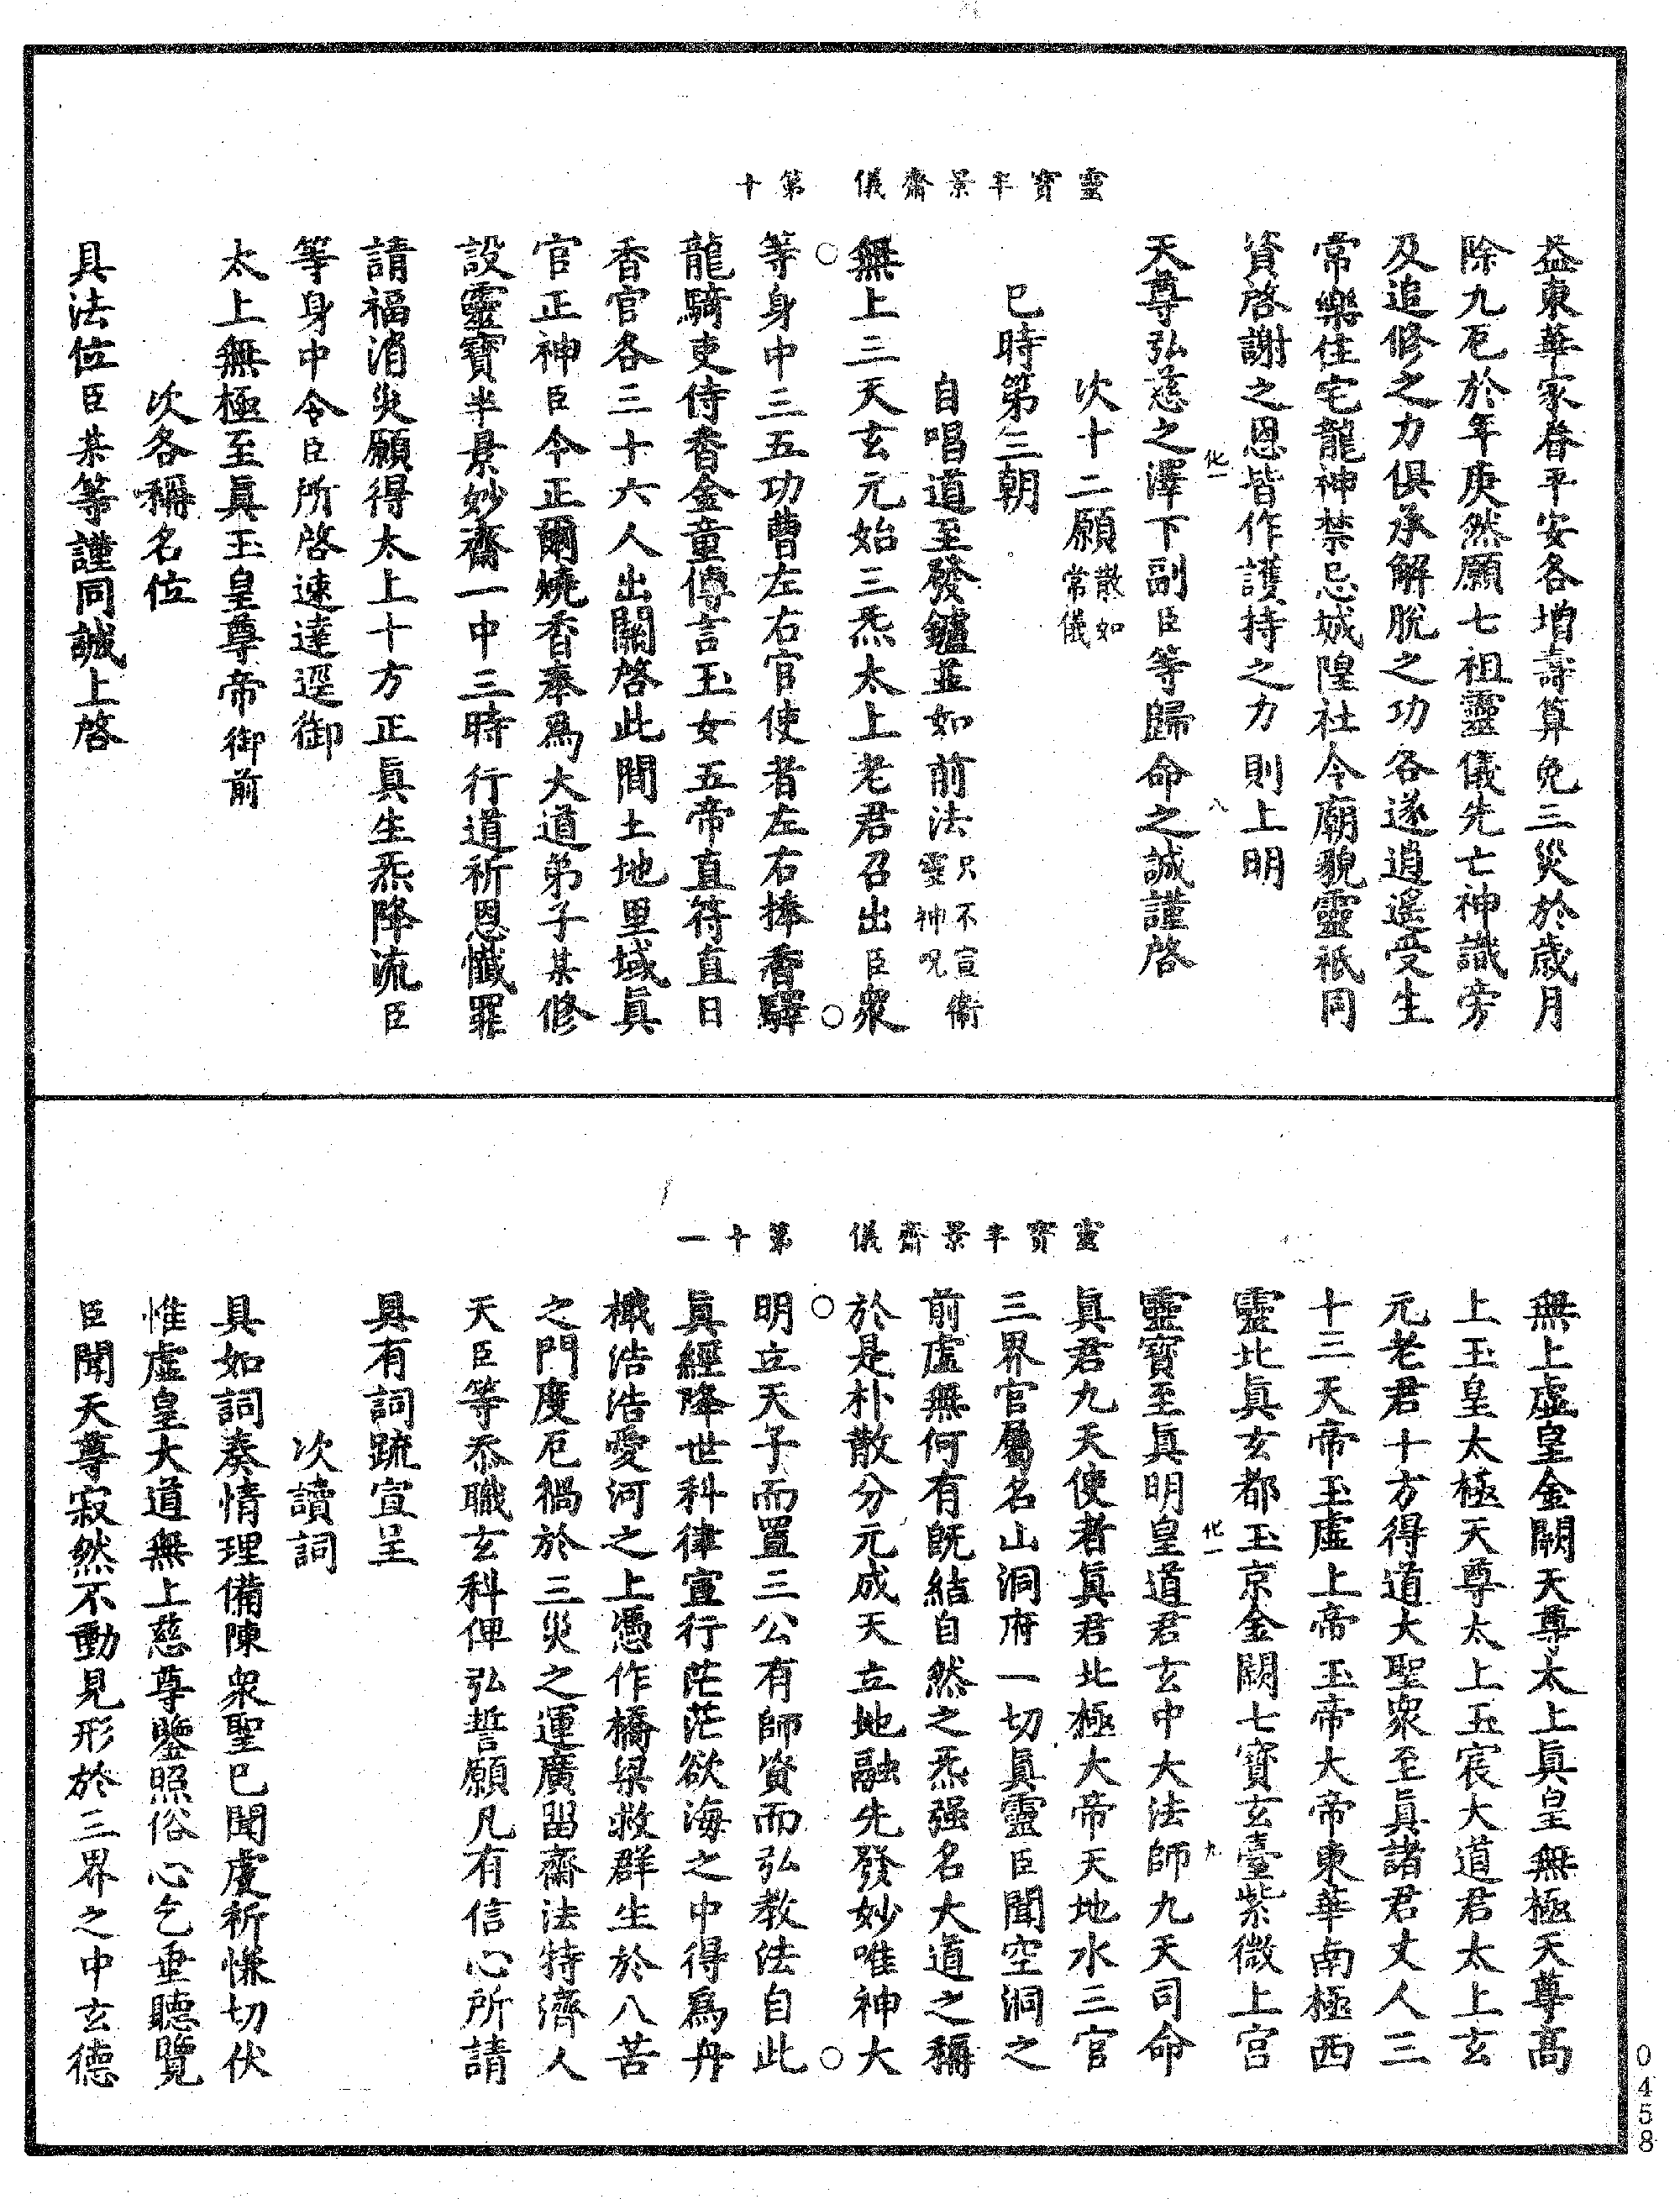 靈寶半景齋儀　第十
益東華家眷平安各增壽算免三災於歲月
除九厄於年庚然願七祖靈儀先亡神識旁
及追修之力俱承解脫之功各遂逍遙受生
常樂住宅龍神禁忌城隍社令廟貌靈祇同
資啓謝之恩皆作護持之力則上明
化一　八
天尊弘慈之澤下副臣等歸命之誠謹啓
次十二願散如常儀
巳時第三朝
自唱道至發鑪並如前法只不宣衞靈神呪
無上三天玄元始三炁太上老君召出臣衆
等身中三五功曹左右官使者左右捧香驛
龍騎吏侍香金童傳言玉女五帝直符直日
香官各三十六人出關啓此間土地里域眞
官正神臣今正爾燒香奉爲大道弟子某修
設靈寶半景妙齋一中三時行道祈恩懺罪
請福消災願得太上十方正眞生炁降流臣
等身中令臣所啓速達逕御
太上無極至眞玉皇尊帝御前
次各稱名位
具法位臣某等謹同誠上啓
靈寶半景齋儀　第十一
無上虛皇金闕天尊太上眞皇無極天尊高
上玉皇太極天尊太上玉宸大道君太上玄
元老君十方得道大聖衆至眞諸君丈人三
十二天帝玉虛上帝玉帝大帝東華南極西
靈北眞玄都玉京金闕七寶玄臺紫微上宮
化一　九
靈寶至眞明皇道君玄中大法師九天司命
眞君九天使者眞君北極大帝天地水三官
三界官屬名山洞府一切眞靈臣聞空洞之
前虛無何有旣結自然之炁强名大道之稱
於是朴散分元成天立地融先發妙唯神大
明立天子而置三公有師資而弘教法自此
眞經降世科律宣行茫茫欲海之中得爲舟
檝浩浩愛河之上憑作橋梁救群生於八苦
之門度厄禍於三災之運廣留齋法特濟人
天臣等忝職玄科俾弘誓願凡有信心所請
具有詞䟽宣呈
次讀詞
具如詞奏情理備陳衆聖已聞虔祈慊切伏
惟虛皇大道無上慈尊鑒照俗心乞垂聽覽
臣聞天尊寂然不動見形於三界之中玄德
0458